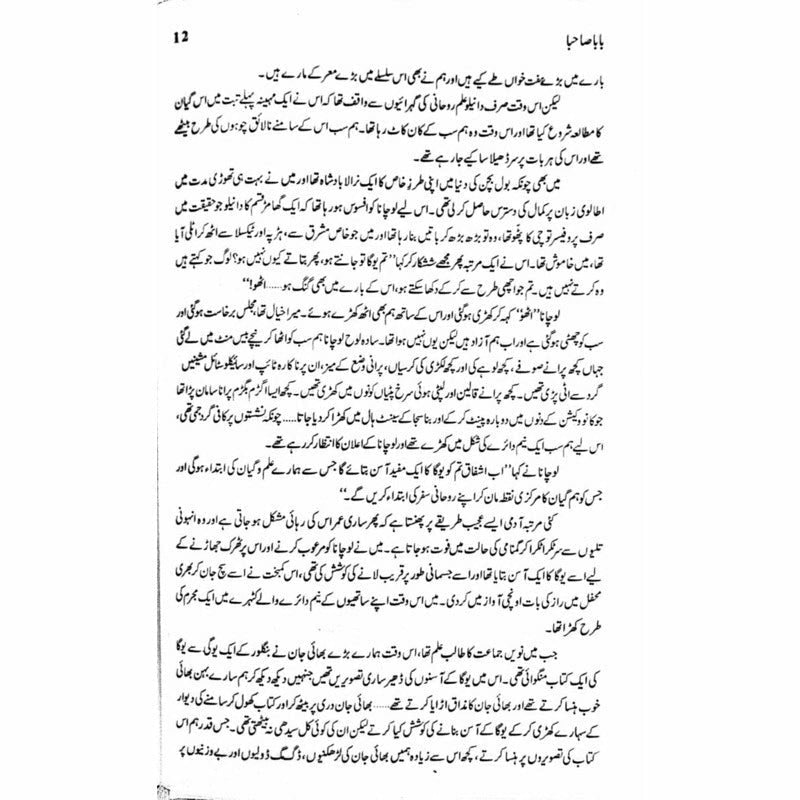 باباصاحبا
12
بارے میں بڑے ہفت خواں طے کیے ہیں اور ہم نے بھی اس سلسلے میں بڑے معرکے مارے ہیں۔
لیکن اس وقت صرف دانیلو علم روحانی کی گہرائیوں سے واقف تھا کہ اس نے ایک مہینہ پہلے تبت میں اس گیان
کا مطالعہ شروع کیا تھا اور اس وقت وہ ہم سب کے کان کاٹ رہا تھا۔ ہم سب اس کے سامنے نالائق چوہوں کی طرح بیٹھے
تھے اور اس کی ہر بات پر سر ڈھیلا سا کیے جا رہے تھے۔
میں بھی چونکہ بول بچن کی دنیا میں اپنی طرزِ خاص کا ایک نرالا بادشاہ تھا اور میں نے بہت ہی تھوڑی مدت میں
اطالوی زبان پر کمال کی دسترس حاصل کر لی تھی۔ اس لیے لوچانا کو افسوس ہو رہا تھا کہ ایک گھامڑ قسم کا دانیلو جو حقیقت میں
صرف پروفیسر توچی کا پٹھو تھا، وہ تو بڑھ بڑھ کر باتیں بنا رہا تھا اور میں جو خاص مشرق سے، ہڑپہ اور ٹیکسلا سے اٹھ کر اٹلی آیا
تھا، میں خاموش تھا۔ اس نے ایک مرتبہ پھر مجھے ششکار کر کہا ’’تم یوگا تو جانتے ہو، پھر بتاتے کیوں نہیں ہو؟ لوگ جو کہتے ہیں
وہ کرتے نہیں ہیں۔ تم جو اچھی طرح سے کر کے دکھا سکتے ہو، اس کے بارے میں بھی گنگ ہو...... اٹھو!‘‘
لوچانا ’’اٹھو‘‘ کہہ کر کھڑی ہو گئی اور اس کے ساتھ ہم بھی اٹھ کھڑے ہوئے۔ میرا خیال تھا، مجلس برخاست ہو گئی اور
سب کو چھٹی ہو گئی ہے اور اب ہم آزاد ہیں لیکن یوں نہیں ہوا تھا۔ سادہ لوح لوچانا ہم سب کو اٹھا کر نیچے بیس منٹ میں لے گئی
جہاں کچھ پرانے صوفے، کچھ لوہے کی اور کچھ لکڑی کی کرسیاں، پرانی وضع کے میز، ان پر ناکارہ ٹائپ اور سائیکلو سٹائل مشینیں
گرد سے اٹی پڑی تھیں۔ کچھ پرانے قالین اور لپٹی ہوئی سرخ پٹیاں کونوں میں کھڑی تھیں۔ کچھ ایسا اگڑم بگڑم پرانا سامان پڑا تھا
جو کانووکیشن کے دنوں میں دوبارہ پینٹ کر کے اور بنا سجا کے سینٹ ہال میں کھڑا کر دیا جاتا..... چونکہ نشستوں پر کافی گرد جمی تھی،
اس لیے ہم سب ایک نیم دائرے کی شکل میں کھڑے تھے اور لوچانا کے اعلان کا انتظار کر رہے تھے۔
لوچانا نے کہا ’’اب اشفاق تم کو یوگا کا ایک مفید آسن بتائے گا جس سے ہمارے علم و گیان کی ابتداء ہو گی اور
جس کو ہم گیان کا مرکزی نقطہ مان کر اپنے روحانی سفر کی ابتداء کریں گے۔‘‘
کئی مرتبہ آدمی ایسے عجیب طریقے پر پھنستا ہے کہ پھر ساری عمر اس کی رہائی مشکل ہو جاتی ہے اور وہ انہونی
تلیوں سے سر ٹکرا ٹکرا کر گمنامی کی حالت میں فوت ہو جاتا ہے۔ میں نے لوچانا کو مرعوب کرنے اور اس پر ٹھرک جھاڑنے کے
لیے اسے یوگا کا ایک آسن بتایا تھا اور اسے جسمانی طور پر قریب لانے کی کوشش کی تھی، اس کمبخت نے اسے سچ جان کر بھری
محفل میں راز کی بات اونچی آواز میں کر دی۔ میں اس وقت اپنے ساتھیوں کے نیم دائرے والے کٹہرے میں ایک مجرم کی
طرح کھڑا تھا۔
جب میں نویں جماعت کا طالب علم تھا، اس وقت ہمارے بڑے بھائی جان نے بنگلور کے ایک یوگی سے یوگا
کی ایک کتاب منگوائی تھی۔ اس میں یوگا کے آسنوں کی ڈھیر ساری تصویریں تھیں جنہیں دیکھ دیکھ کر ہم سارے بہن بھائی
خوب ہنسا کرتے تھے اور بھائی جان کا مذاق اڑایا کرتے تھے...... بھائی جان دری پر بیٹھ کر اور کتاب کھول کر سامنے کی دیوار
کے سہارے کھڑی کر کے یوگا کے آسن بنانے کی کوشش کیا کرتے لیکن ان کی کوئی کل سیدھی نہ بیٹھتی تھی۔ جس قدر ہم اس
کتاب کی تصویروں پر ہنسا کرتے، کچھ اس سے زیادہ ہمیں بھائی جان کی لڑھکنیوں، ڈگمگ ڈولیوں اور بے وزنیوں پر